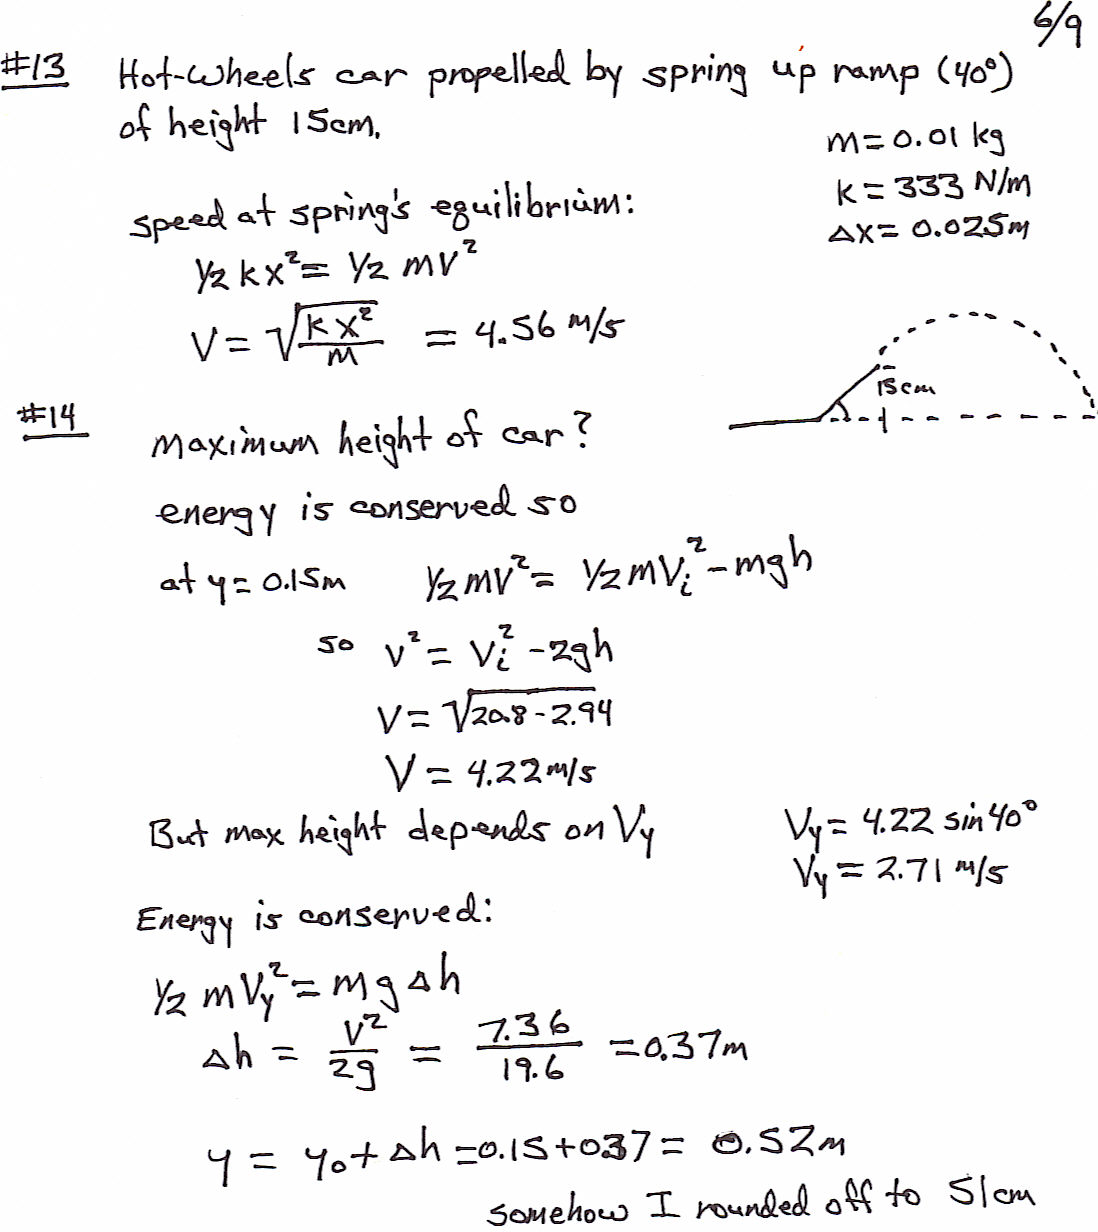 6/9
#13 Hot-Wheels car propelled by spring up ramp (40°)
of height 15cm.
m = 0.01 kg
k = 333 N/m
Δx = 0.025m
speed at spring's equilibrium:
1/2 kx² = 1/2 mv²
V = √(kx²/m) = 4.56 m/s
15cm
#14 Maximum height of car?
energy is conserved so
at y = 0.15m 1/2 mv² = 1/2 mVi² - mgh
so v² = vi² - 2gh
V = √(20.8 - 2.94)
V = 4.22 m/s
But max height depends on Vy
Vy = 4.22 sin 40°
Vy = 2.71 m/s
Energy is conserved:
1/2 m Vy² = mgΔh
Δh = v²/2g = 7.36/19.6 = 0.37m
y = y₀ + Δh = 0.15 + 0.37 = 0.52m
somehow I rounded off to 51cm